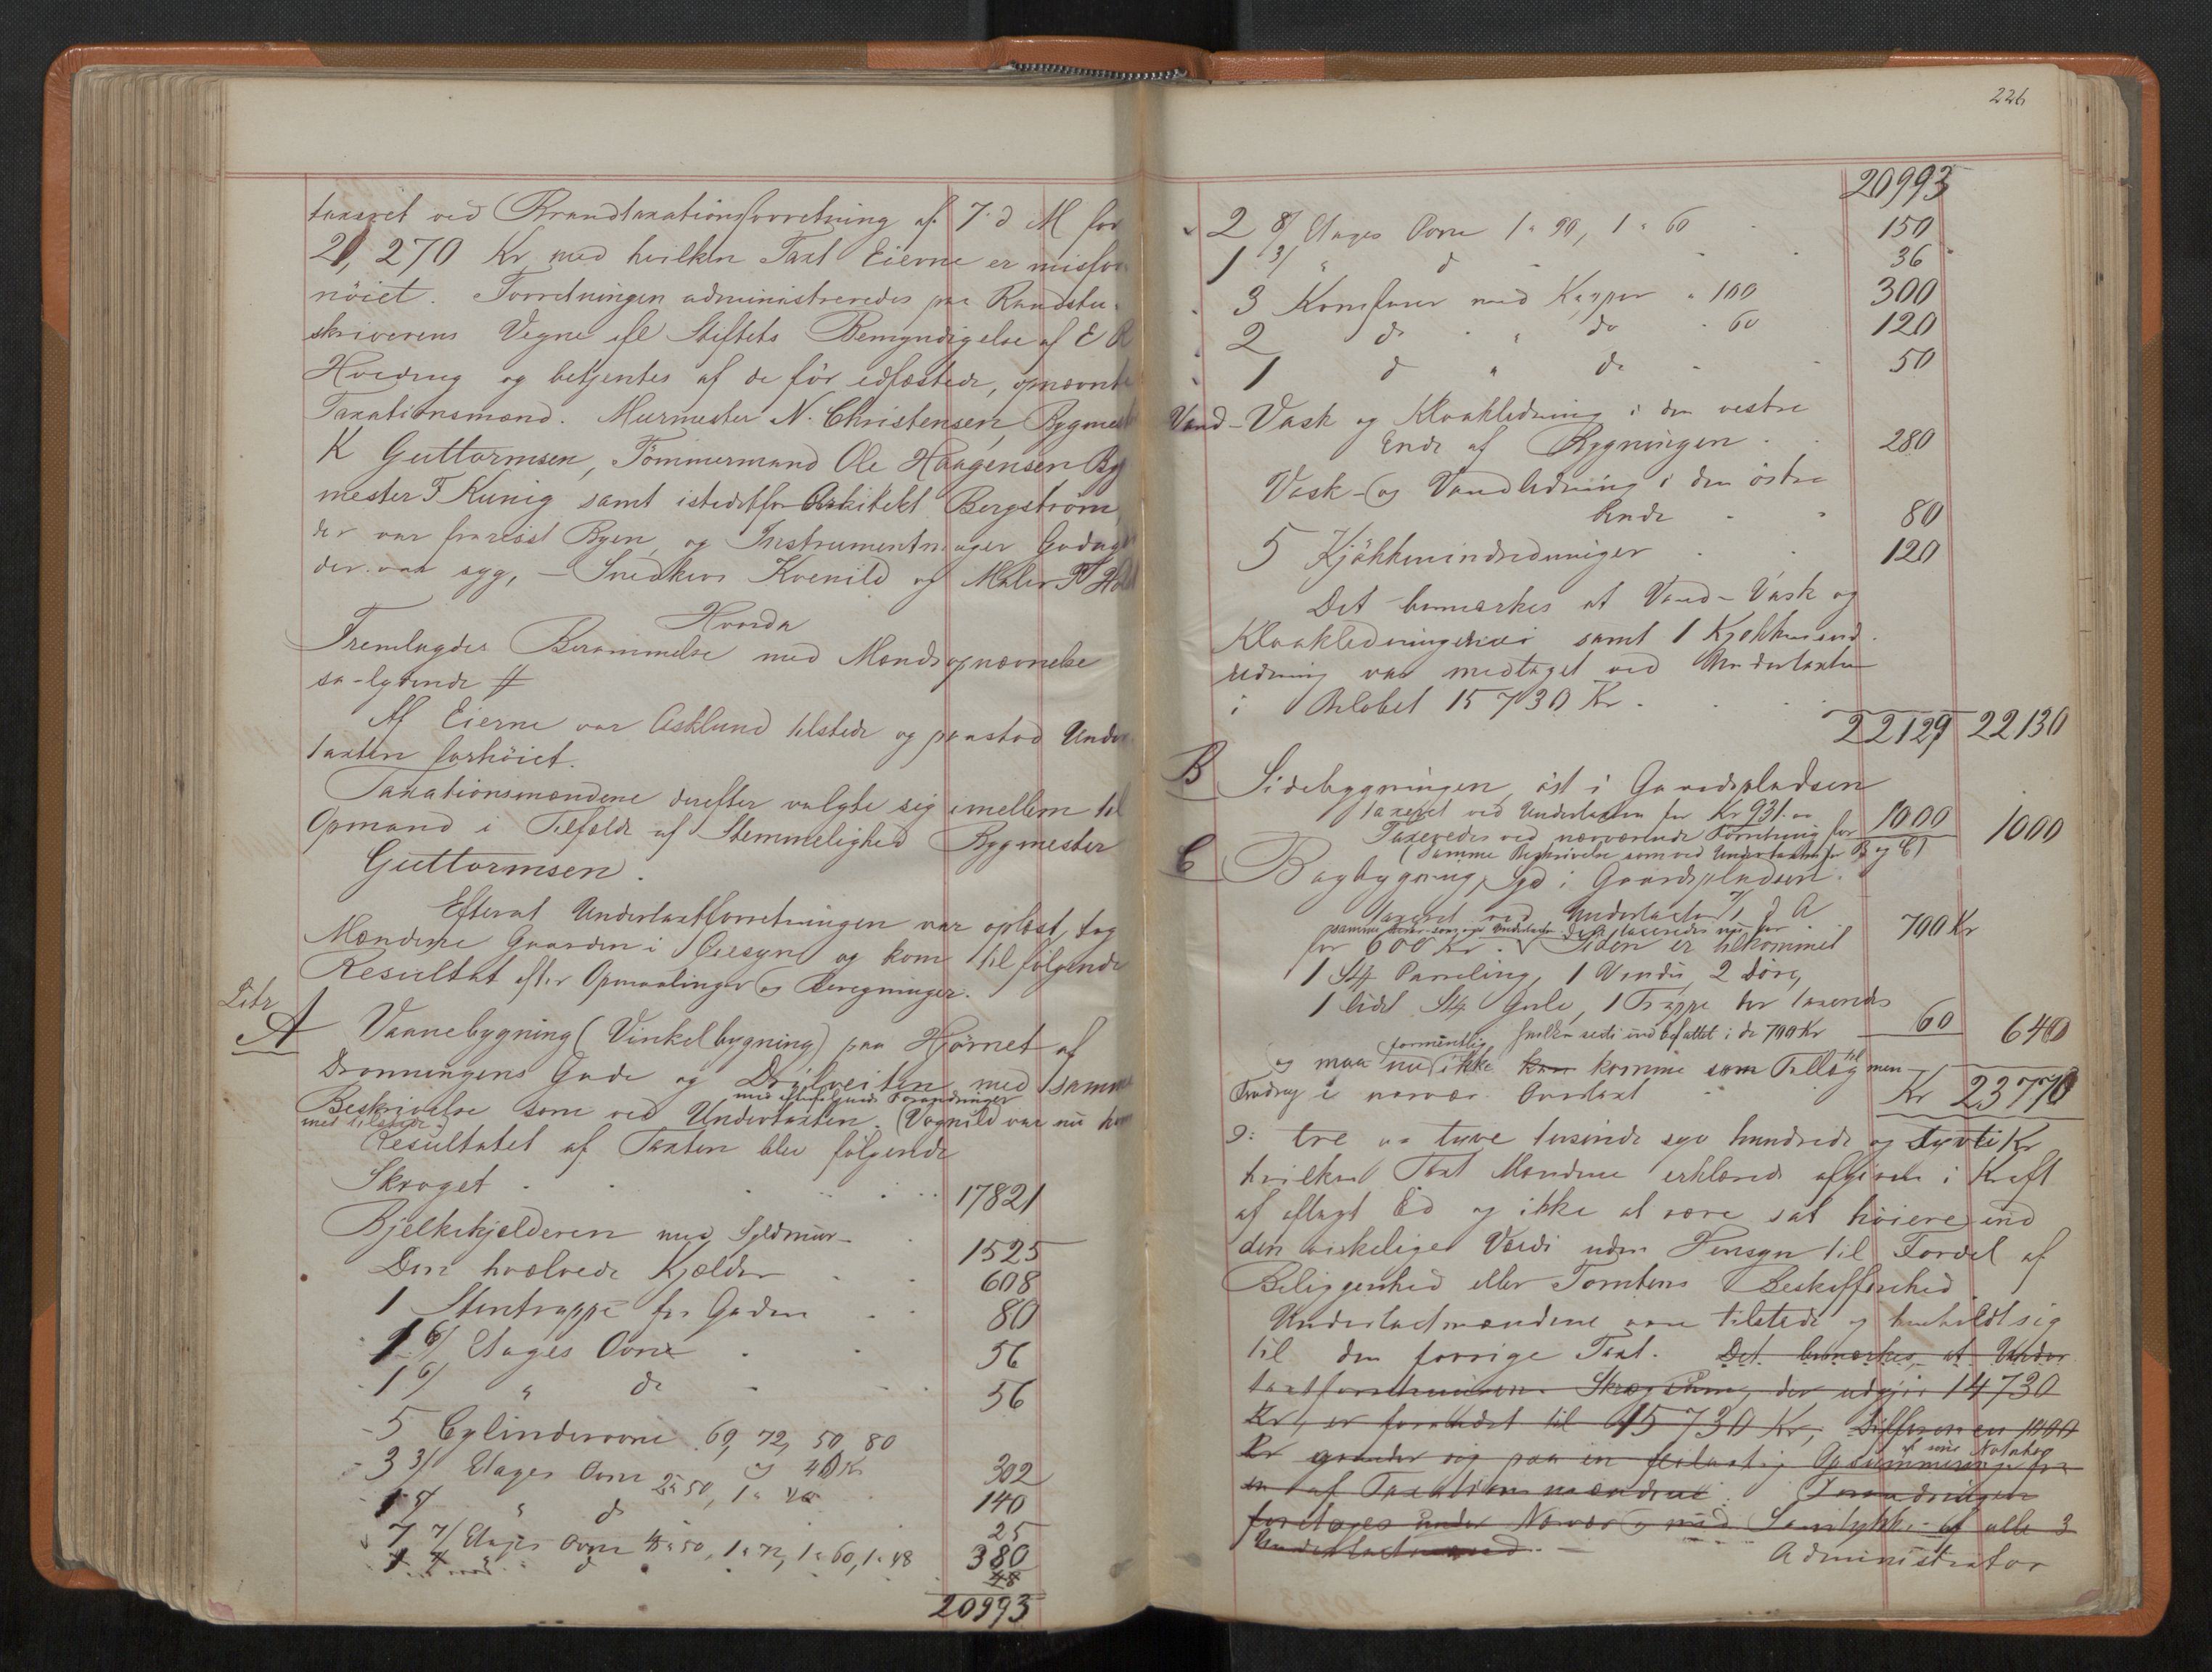 taxeret ved Brandtaxationsforretning af 7 d M for
21,270 Kr med hvilken Taxt Eierne er misfor-
nöiet. Forretningen administreredes paa Raadstu-
skriverens Vegne efl Stiftets Bemyndigelse af E R
Hvedrug og betjentes af de før edfæstede, opnævnte
Taxationsmænd. Murmester N. Christensen, Bygmest
K Guttormsen, Tömmermand Ole Haagensen, Byg
mester F Kunig samt istedetfor Arkitekt Bergström,
der var frareist Byen, og Instrumentmager
der var syg, – Snedker Kvenild og Maler
Hvorda
Fremlagdes Berammelse med Mændsopnævnelse
sa-lydende #
Af Eierne var Asklund tilstede og paastod Under-
taxten forhöiet.
Taxationsmændene derefter valgte sig imellem til
Opmand i Tilfælde af Stemmelighed Bygmester
Guttormsen.
Efterat Undertaxtforretningen var oplæst, tog
Mændene Gaarden i Øiesyn og kom til følgende
Resultat efter Opmaalinger og Beregninger.
Litr
A Vaanebygning (Vinkelbygning) paa Hjörnet af
Dronningens Gade og Dröilveiten med samme
med efterfølgende Forandringer
Beskrivelse som ved Undertaxten. (Vognild var nu
med tilstede.)
Resultatet af Taxten blev følgende
Skroget 17821
Bjelkekjelderen med Syldmur 1525
Den hvælvede Kjelder 608
1 Stentrappe fra Gaden 80
1 6/ Etages Ovne 56
1 6/ " do 56
5 Cylinderovne 60, 72, 50 80
og 40 Kr 302
3 3/ Etages Ovne 2 a 50, 1 a 40 140
1 5/ " do 25
7 7/ Etages Ovne 4 a 50, 1 a 72, 1 a 60, 1 a 48 380
48
20993
226
20993
2 8/ Etages Ovne 1 a 90, 1 a 60 150
1 3/ " d 36
3 Komfurer med Kapper a 100 300
2 do " do a 60 120
1 d " do 50
Vand-Vask og Kloakledning i den vestre
Ende af Bygningen 280
Vask- og Vandledning i den östre
Ende 80
5 Kjökkenindredninger 120
Det bemærkes at Vand-Vask og
Kloakledningerne samt 1 Kjøkkenind-
redning var medtaget ved Undertaxten
i Beløbet 15730 Kr.
22129 22130
B Sidebygningen öst i Gaardspladsen
taxeret ved Undertaxten for Kr 931.00
Taxeredes ved nærværende Forretning for 1000 1000
(Samme Beskrivelse som ved Undertaxten for B og C)
C Bagbygning, syd i Gaardspladsen.
taxeret ved Undertaxten 7/ d A
samme som ved Undertaxten taxeredes nu for 700 Kr
for 600 Kr. Siden er tilkommet
1 Stk Paneling, 1 Vindu, 2 Döre,
1 lidet Stk Gulv, 1 Trappe der taxeredes
hvilken sidste indbefattet i de 700 Kr 60 640
formentlig
og maa nu ikke kan komme som Tillæg men til
Fradrag i nærvær. Overtaxt Kr 23770
ɔ: tre og tyve tusinde syv hundrede og sytti Kr
hvilken Taxt Mændene erklærede afgiven i Kraft
af aflagt Ed og ikke at være sat höiere end
den virkelige Værdi uden Hensyn til Fordel af
Beliggenhed eller Tomtens Beskaffenhed
Undertaxtmændene vare tilstede og henholdt sig
til den forrige Taxt. Det bemærkes, at Under
taxtforretningens Skrogsum, der udgjör 14730
Kr, er forandret til 15730 Kr, Differencen 1000
Kr grunder sig paa en feilagtig Opsummering fra
af mine Notater
en af Taxationsmændene. Forandringen
foretages under Nærvær og med Samtykke af alle 3
Undertaxtmænd. –
Administrator